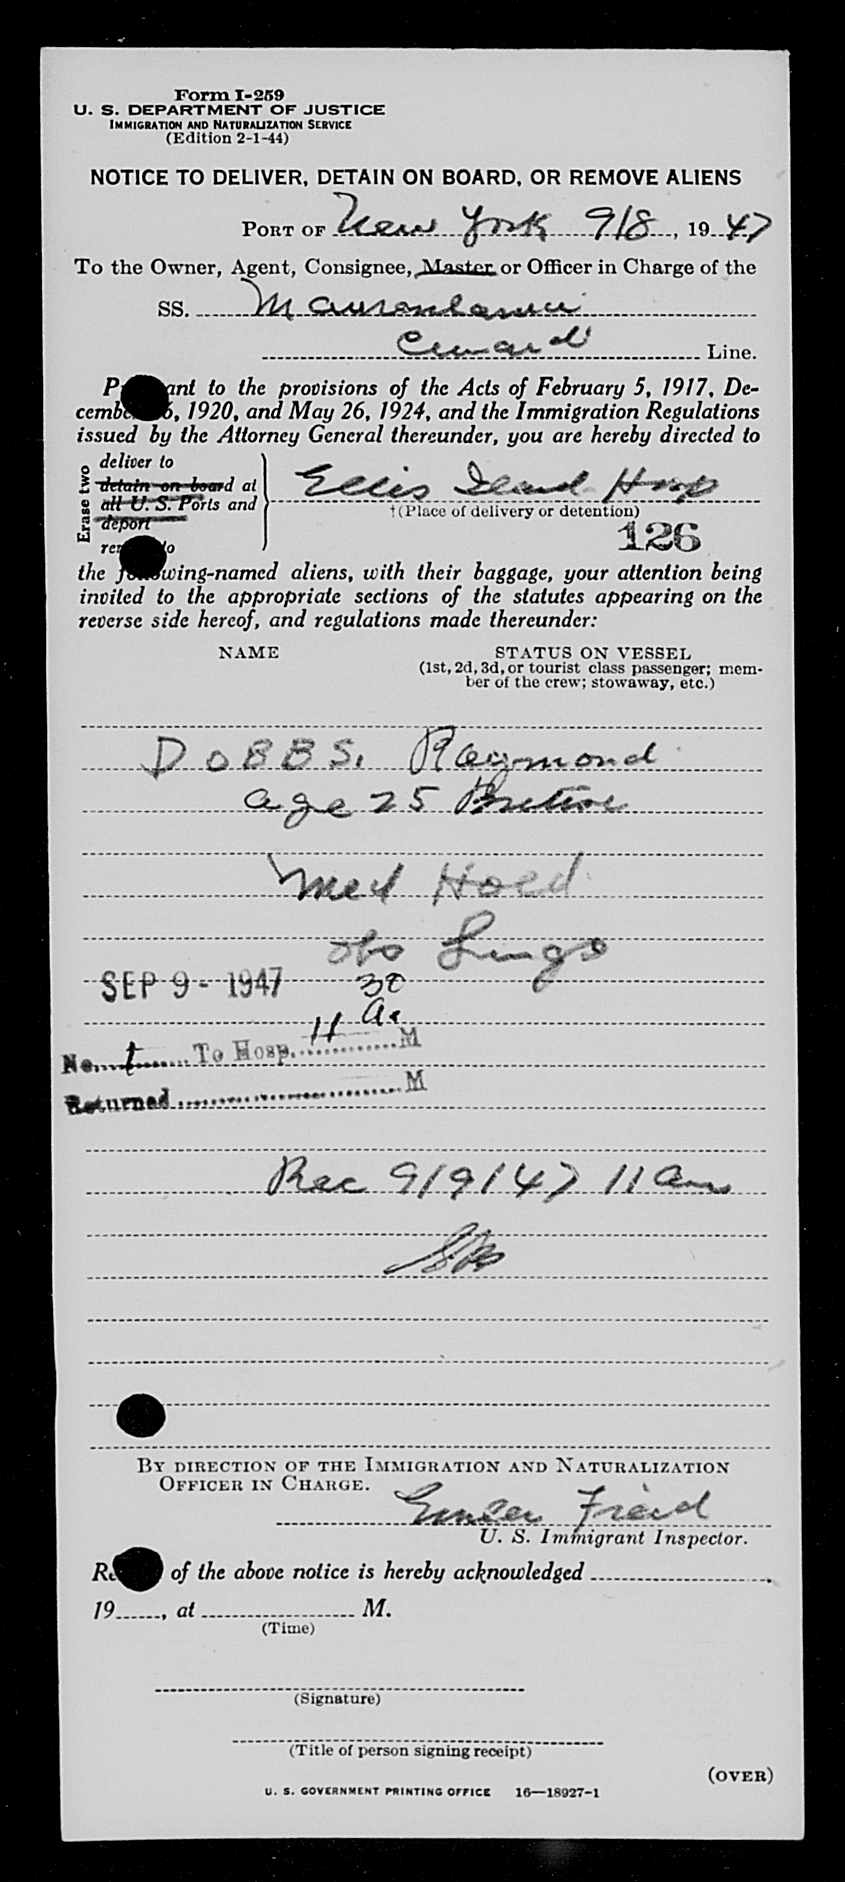 Form I-259
U. S. DEPARTMENT OF JUSTICE
IMMIGRATION AND NATURALIZATION SERVICE
(Edition 2-1-44)
NOTICE TO DELIVER, DETAIN ON BOARD, OR REMOVE ALIENS
PORT OF New York 9/8, 1947
To the Owner, Agent, Consignee, Master or Officer in Charge of the
SS.
Cunard Line.
P ant to the provisions of the Acts of February 5, 1917, De-
cembe 5, 1920, and May 26, 1924, and the Immigration Regulations
issued by the Attorney General thereunder, you are hereby directed to
Erase two
deliver to
detain on board at
all U. S. Ports and
deport
re o
Ellis Island Hosp
†(Place of delivery or detention)
126
the f wing-named aliens, with their baggage, your attention being
invited to the appropriate sections of the statutes appearing on the
reverse side hereof, and regulations made thereunder:
NAME STATUS ON VESSEL
(1st, 2d, 3d, or tourist class passenger; mem-
ber of the crew; stowaway, etc.)
DOBBS, Raymond
age 25
Med Hold
obs Lungs
SEP 9 - 1947 30
a.
No. 1 To Hosp. 11 M
Returned M
Rec 9/9/47 11 am
BY DIRECTION OF THE IMMIGRATION AND NATURALIZATION
OFFICER IN CHARGE.
U. S. Immigrant Inspector.
Re of the above notice is hereby acknowledged
19 , at M.
(Time)
(Signature)
(Title of person signing receipt)
(OVER)
U. S. GOVERNMENT PRINTING OFFICE 16—18927-1